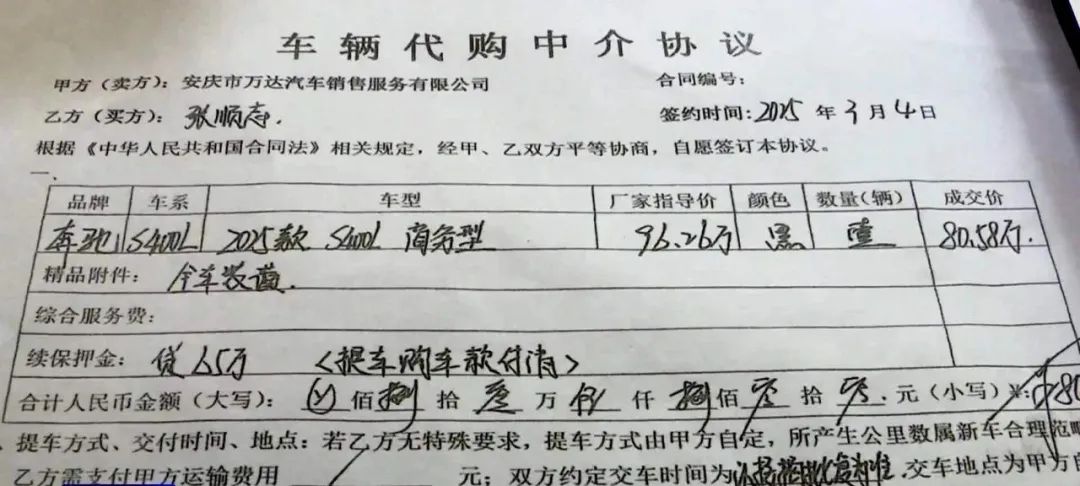 车辆代购中介协议
甲方（卖方）：安庆市万达汽车销售服务有限公司 合同编号：
乙方（买方）：张顺志. 签约时间：2025 年 3 月 4 日
根据《中华人民共和国合同法》相关规定，经甲、乙双方平等协商，自愿签订本协议。
一、
品牌 车系 车型 厂家指导价 颜色 数量（辆） 成交价
奔驰 S400L 2025款 S400L 商务型 96.26万 黑 壹 80.58万.
精品附件： 全车发黄.
综合服务费：
续保押金： 贷65万 〈提车购车款付清〉
合计人民币金额（大写）： 佰 捌 拾 万 仟 捌 佰 零 拾 零 元（小写）¥:
、提车方式、交付时间、地点：若乙方无特殊要求，提车方式由甲方自定，所产生公里数属新车合理范
乙方需支付甲方运输费用 元；双方约定交车时间为 .交车地点为甲方自